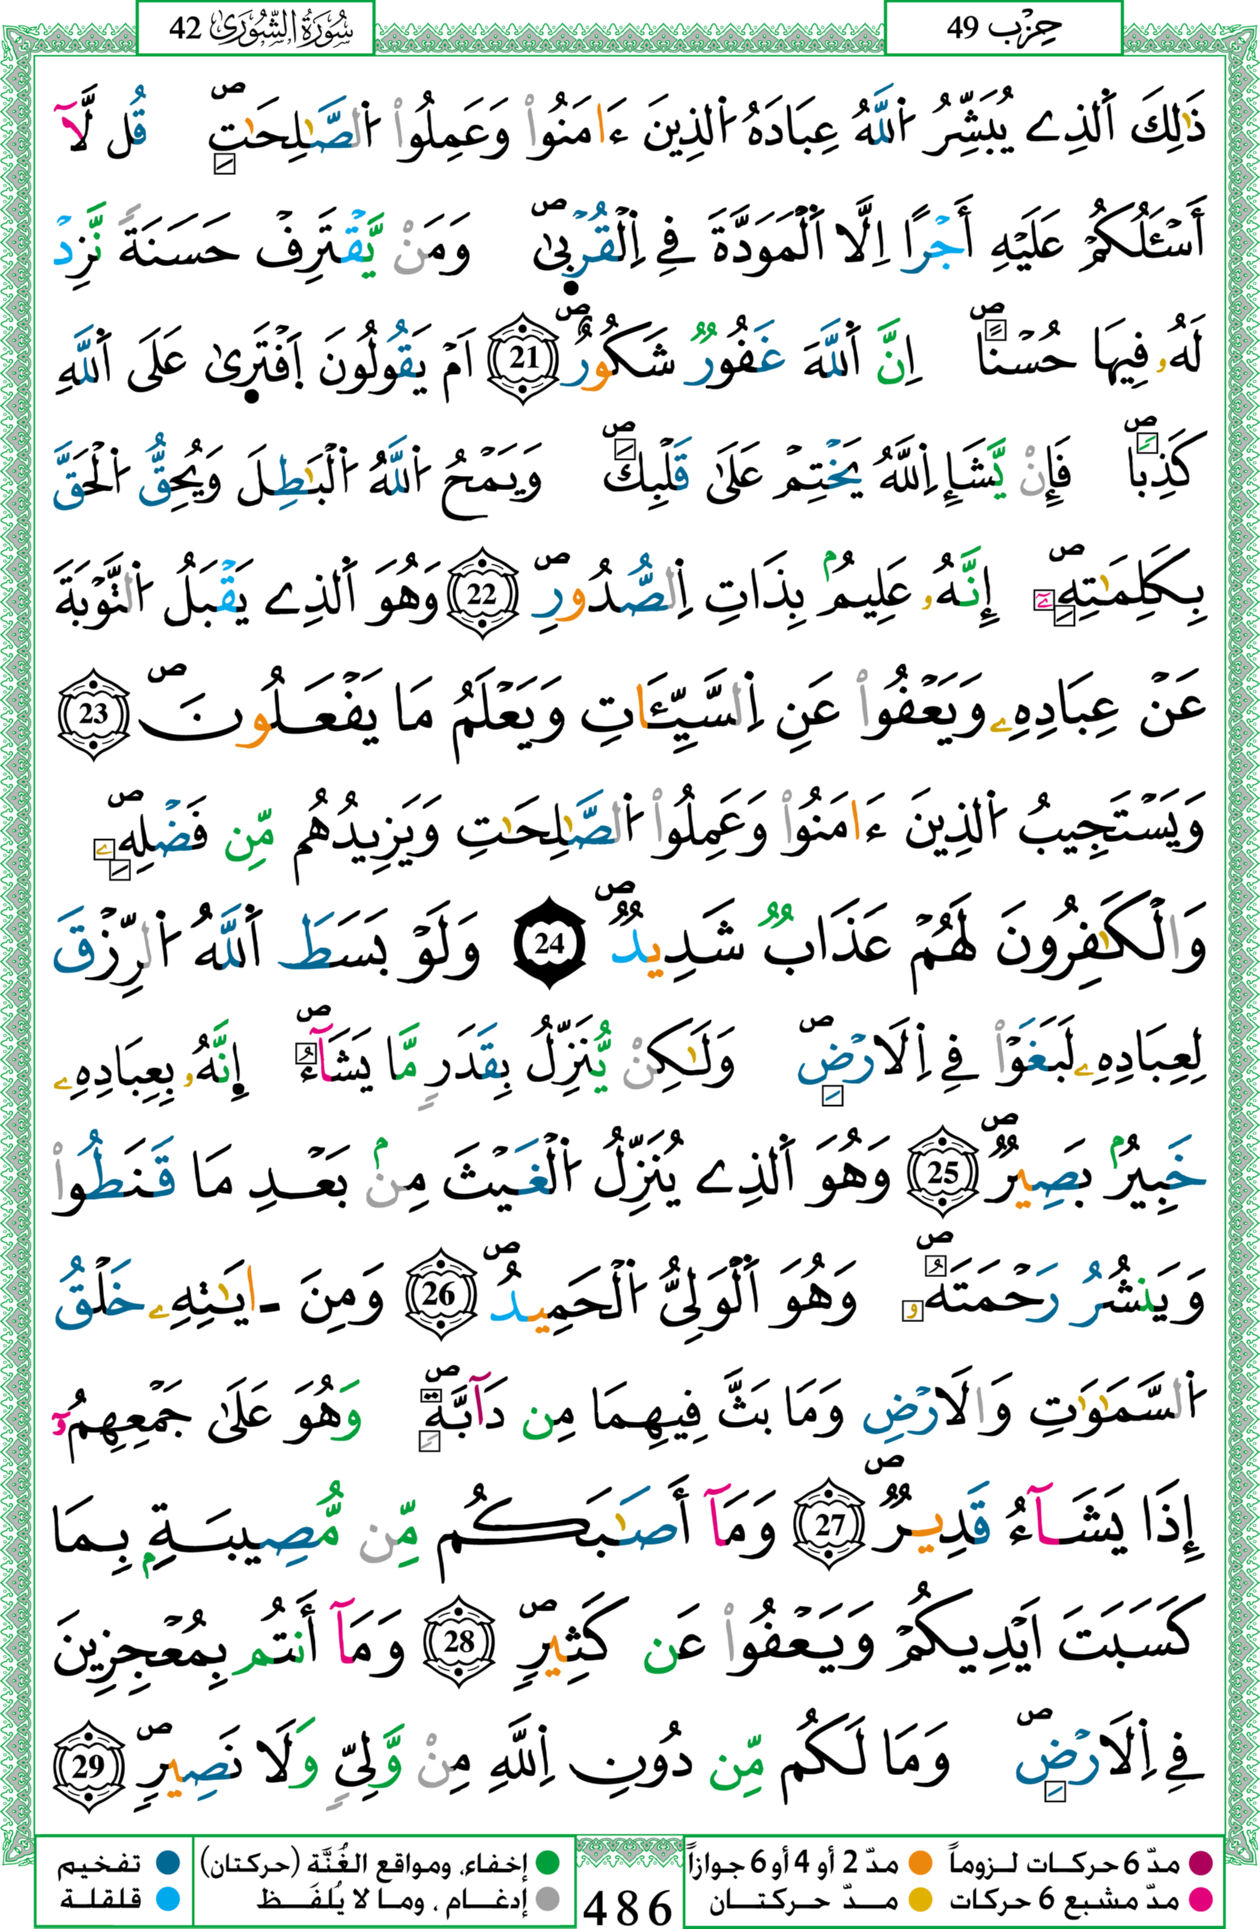 حِزْب 49
سُورَةُ الشُّورَىٰ 42
ذَٰلِكَ اَلَذِے يُبَشِّرُ اُللَّهُ عِبَادَهُ اُلذِينَ ءَامَنُواْ وَعَمِلُواْ اُلصَّٰلِحَٰتِۖ قُل لَّآ
أَسْـَٔلُكُمْ عَلَيْهِ أَجْرًا اِلَّا اَلْمَوَدَّةَ فِے اِلْقُرْب۪يٰۖ وَمَنْ يَّقْتَرِفْ حَسَنَةٗ نَّزِدْ
لَهُۥ فِيهَا حُسْناًۖ اِنَّ اَللَّهَ غَفُورٞ شَكُورٌۖ 21 اَمْ يَقُولُونَ اَفْتَر۪يٰ عَلَى اَللَّهِ
كَذِباٗۖ فَإِنْ يَّشَإِ اِللَّهُ يَخْتِمْ عَلَىٰ قَلْبِكَۖ وَيَمْحُ اُللَّهُ اُلْبَٰطِلَ وَيُحِقُّ اُلْحَقَّ
بِكَلِمَٰتِهِۦٓۖ إِنَّهُۥ عَلِيمُۢ بِذَاتِ اِلصُّدُورِۖ 22 وَهُوَ اَلذِے يَقْبَلُ اُلتَّوْبَةَ
عَنْ عِبَادِهِۦ وَيَعْفُواْ عَنِ اِلسَّيِّـَٔاتِ وَيَعْلَمُ مَا يَفْعَلُونَۖ 23
وَيَسْتَجِيبُ اُلذِينَ ءَامَنُواْ وَعَمِلُواْ اُلصَّٰلِحَٰتِ وَيَزِيدُهُم مِّن فَضْلِهِۦۖ
وَالْكَٰفِرُونَ لَهُمْ عَذَابٞ شَدِيدٞۖ 24 وَلَوْ بَسَطَ اَللَّهُ اُلرِّزْقَ
لِعِبَادِهِۦ لَبَغَوْاْ فِے اِلَارْضِۖ وَلَٰكِنْ يُّنَزِّلُ بِقَدَرٖ مَّا يَشَآءُۖ إِنَّهُۥ بِعِبَادِهِۦ
خَبِيرُۢ بَصِيرٞۖ 25 وَهُوَ اَلذِے يُنَزِّلُ اُلْغَيْثَ مِنۢ بَعْدِ مَا قَنَطُواْ
وَيَنشُرُ رَحْمَتَهُۥۖ وَهُوَ اَلْوَلِيُّ اُلْحَمِيدُۖ 26 وَمِنَ ـ اٰيَٰتِهِۦ خَلْقُ
اُلسَّمَٰوَٰتِ وَالَارْضِ وَمَا بَثَّ فِيهِمَا مِن دَآبَّةٖۖ وَهُوَ عَلَىٰ جَمْعِهِمُۥٓ
إِذَا يَشَآءُ قَدِيرٞۖ 27 وَمَآ أَصَٰبَكُم مِّن مُّصِيبَةِۢ بِمَا
كَسَبَتَ اَيْدِيكُمْ وَيَعْفُواْ عَن كَثِيرٖۖ 28 وَمَآ أَنتُم بِمُعْجِزِينَ
فِے اِلَارْضِۖ وَمَا لَكُم مِّن دُونِ اِللَّهِ مِنْ وَّلِيّٖ وَلَا نَصِيرٍۖ 29
مدّ 6 حركات لـزوماً
مدّ 2 أو 4 أو 6 جوازاً
إخفاء، ومواقع الغُنَّة (حركتان)
تفخيم
مدّ مشبع 6 حركات
مـــدّ حركتـــان
إدغـــام ، ومـا لا يُلفَــظ
قلقلة
486